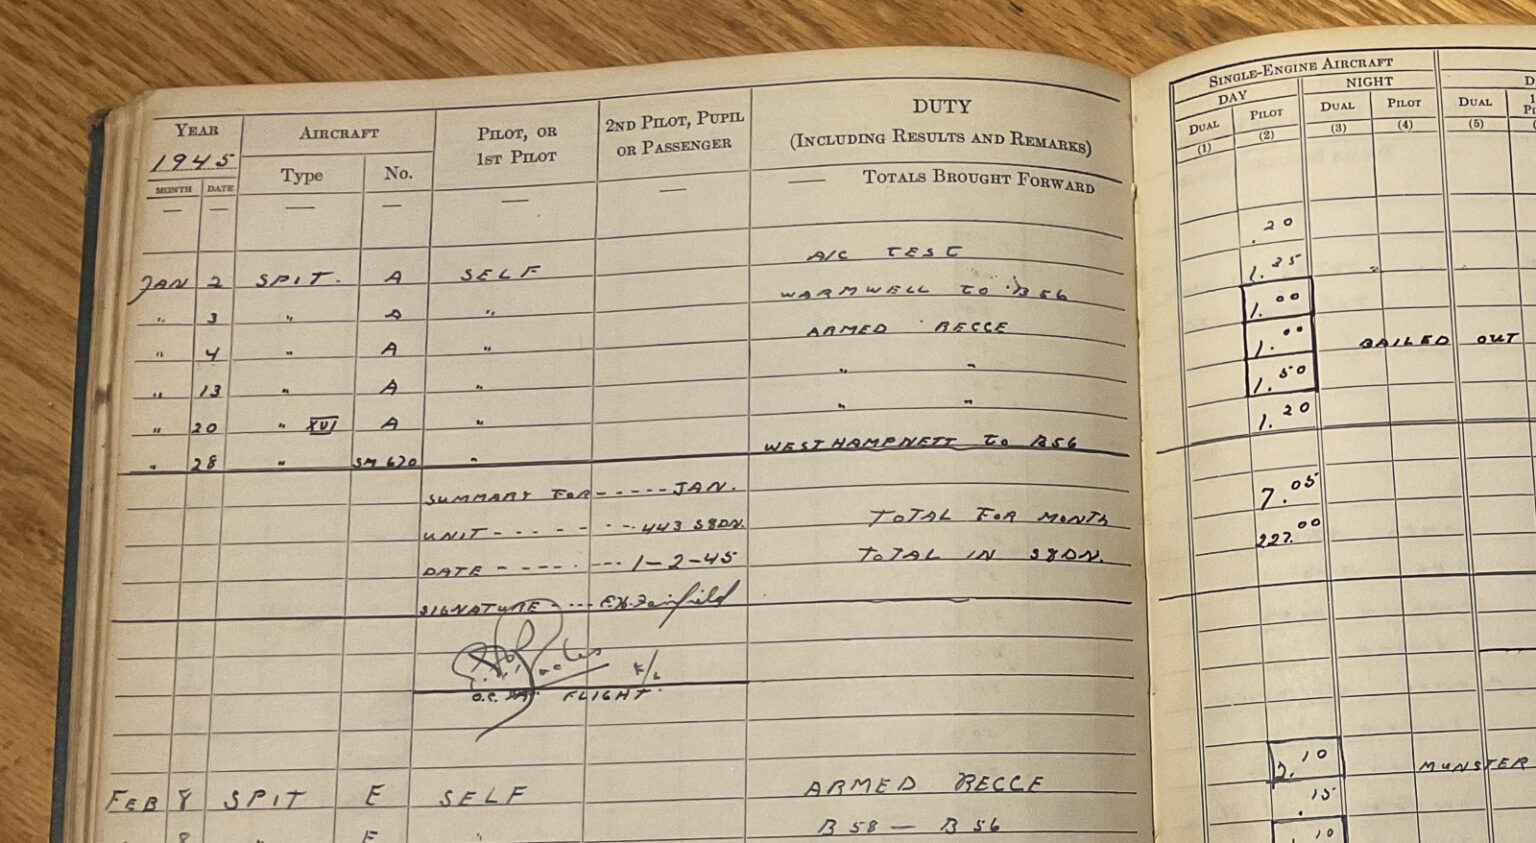 YEAR AIRCRAFT PILOT, OR 1ST PILOT 2ND PILOT, PUPIL OR PASSENGER DUTY (INCLUDING RESULTS AND REMARKS) SINGLE-ENGINE AIRCRAFT
1945 Type No. DAY NIGHT D
MONTH DATE DUAL PILOT DUAL PILOT DUAL
(1) (2) (3) (4) (5)
— — — — — — — TOTALS BROUGHT FORWARD
JAN 2 SPIT. A SELF A/C TEST .20
" 3 " A " WARMWELL TO B56 1.35
" 4 " A " ARMED RECCE 1.00
" 13 " A " " " 1.00 BAILED OUT
" 20 " XVI A " " " 1.50
" 28 " SM 670 " WESTHAMPNETT TO B56 1.20
SUMMARY FOR ----- JAN.
UNIT - - - - - - -- 443 SQDN. TOTAL FOR MONTH 7.05
DATE - - - - - --- 1-2-45 TOTAL IN SQDN. 227.00
SIGNATURE - --- Fairfield
F/L
O.C. FLIGHT.
FEB 8 SPIT E SELF ARMED RECCE 2.10 MUNSTER
8 " E " B58 — B56 .15
.10